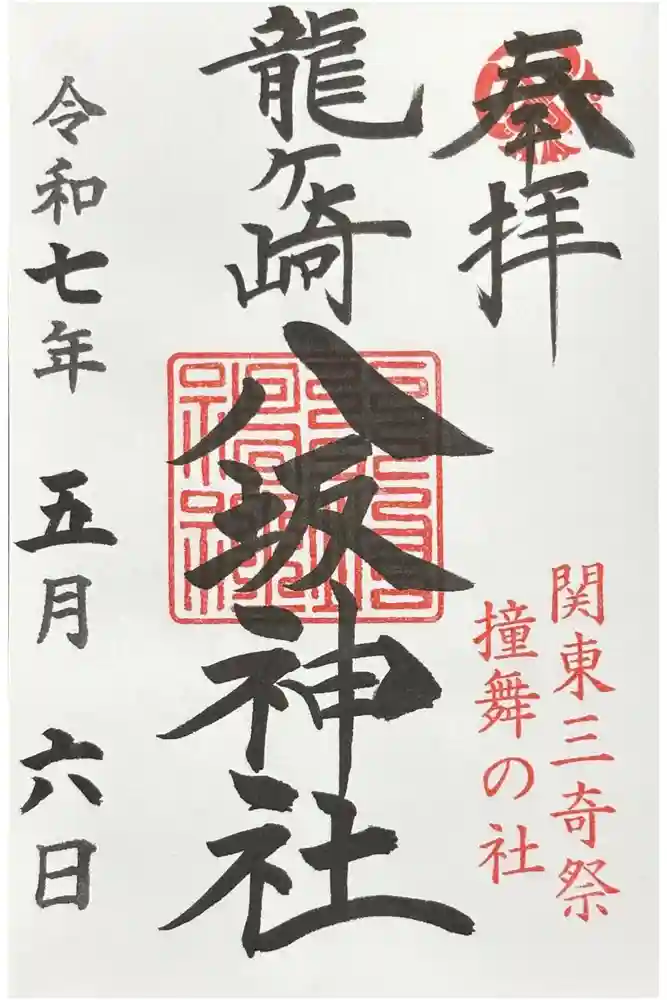 奉拝
関東三奇祭
撞舞の社
龍ヶ崎
八坂神社
令和七年 五月 六日